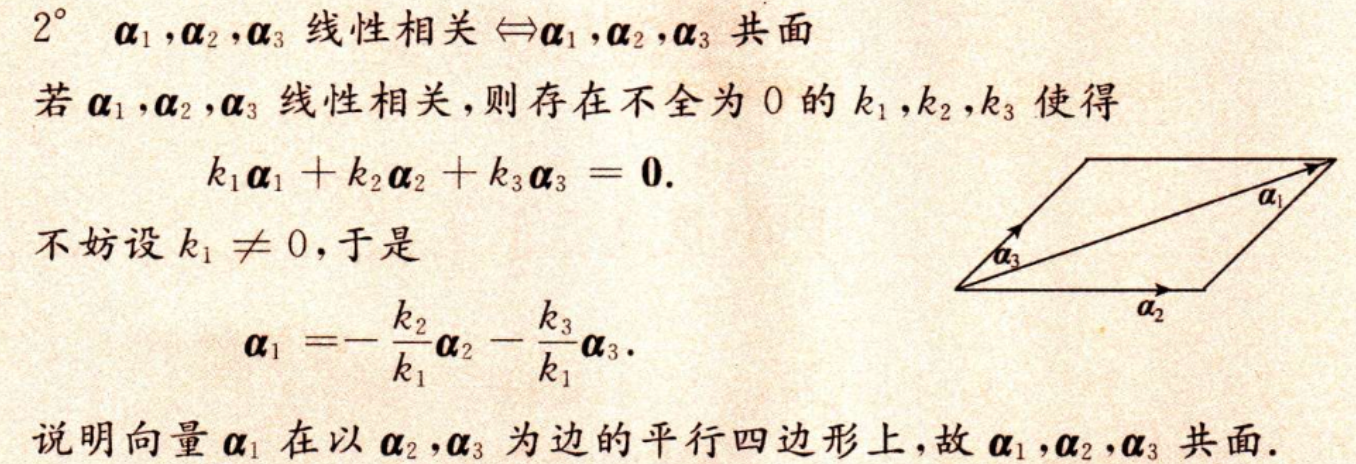 2° α₁,α₂,α₃ 线性相关 ⇔α₁,α₂,α₃ 共面
若 α₁,α₂,α₃ 线性相关,则存在不全为 0 的 k₁,k₂,k₃ 使得
k₁α₁ + k₂α₂ + k₃α₃ = 0.
不妨设 k₁ ≠ 0,于是
α₁ =− k₂/k₁ α₂ − k₃/k₁ α₃.
α₁
α₃
α₂
说明向量 α₁ 在以 α₂,α₃ 为边的平行四边形上,故 α₁,α₂,α₃ 共面.